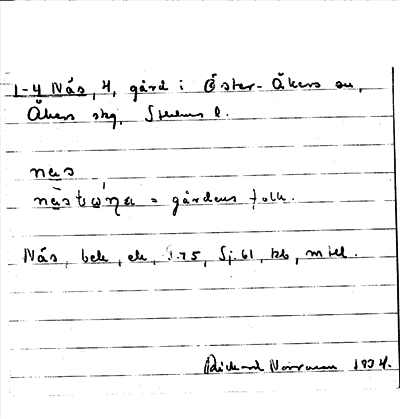 1-4 Näs, 4, gård i Öster-Åkers sn,
Åkers skg, Sthlms l.
nas
= gårdens folk.
Näs, bek, ek, 75, Sj. 61, kb, m fl.
Rickard Norrman 1934.